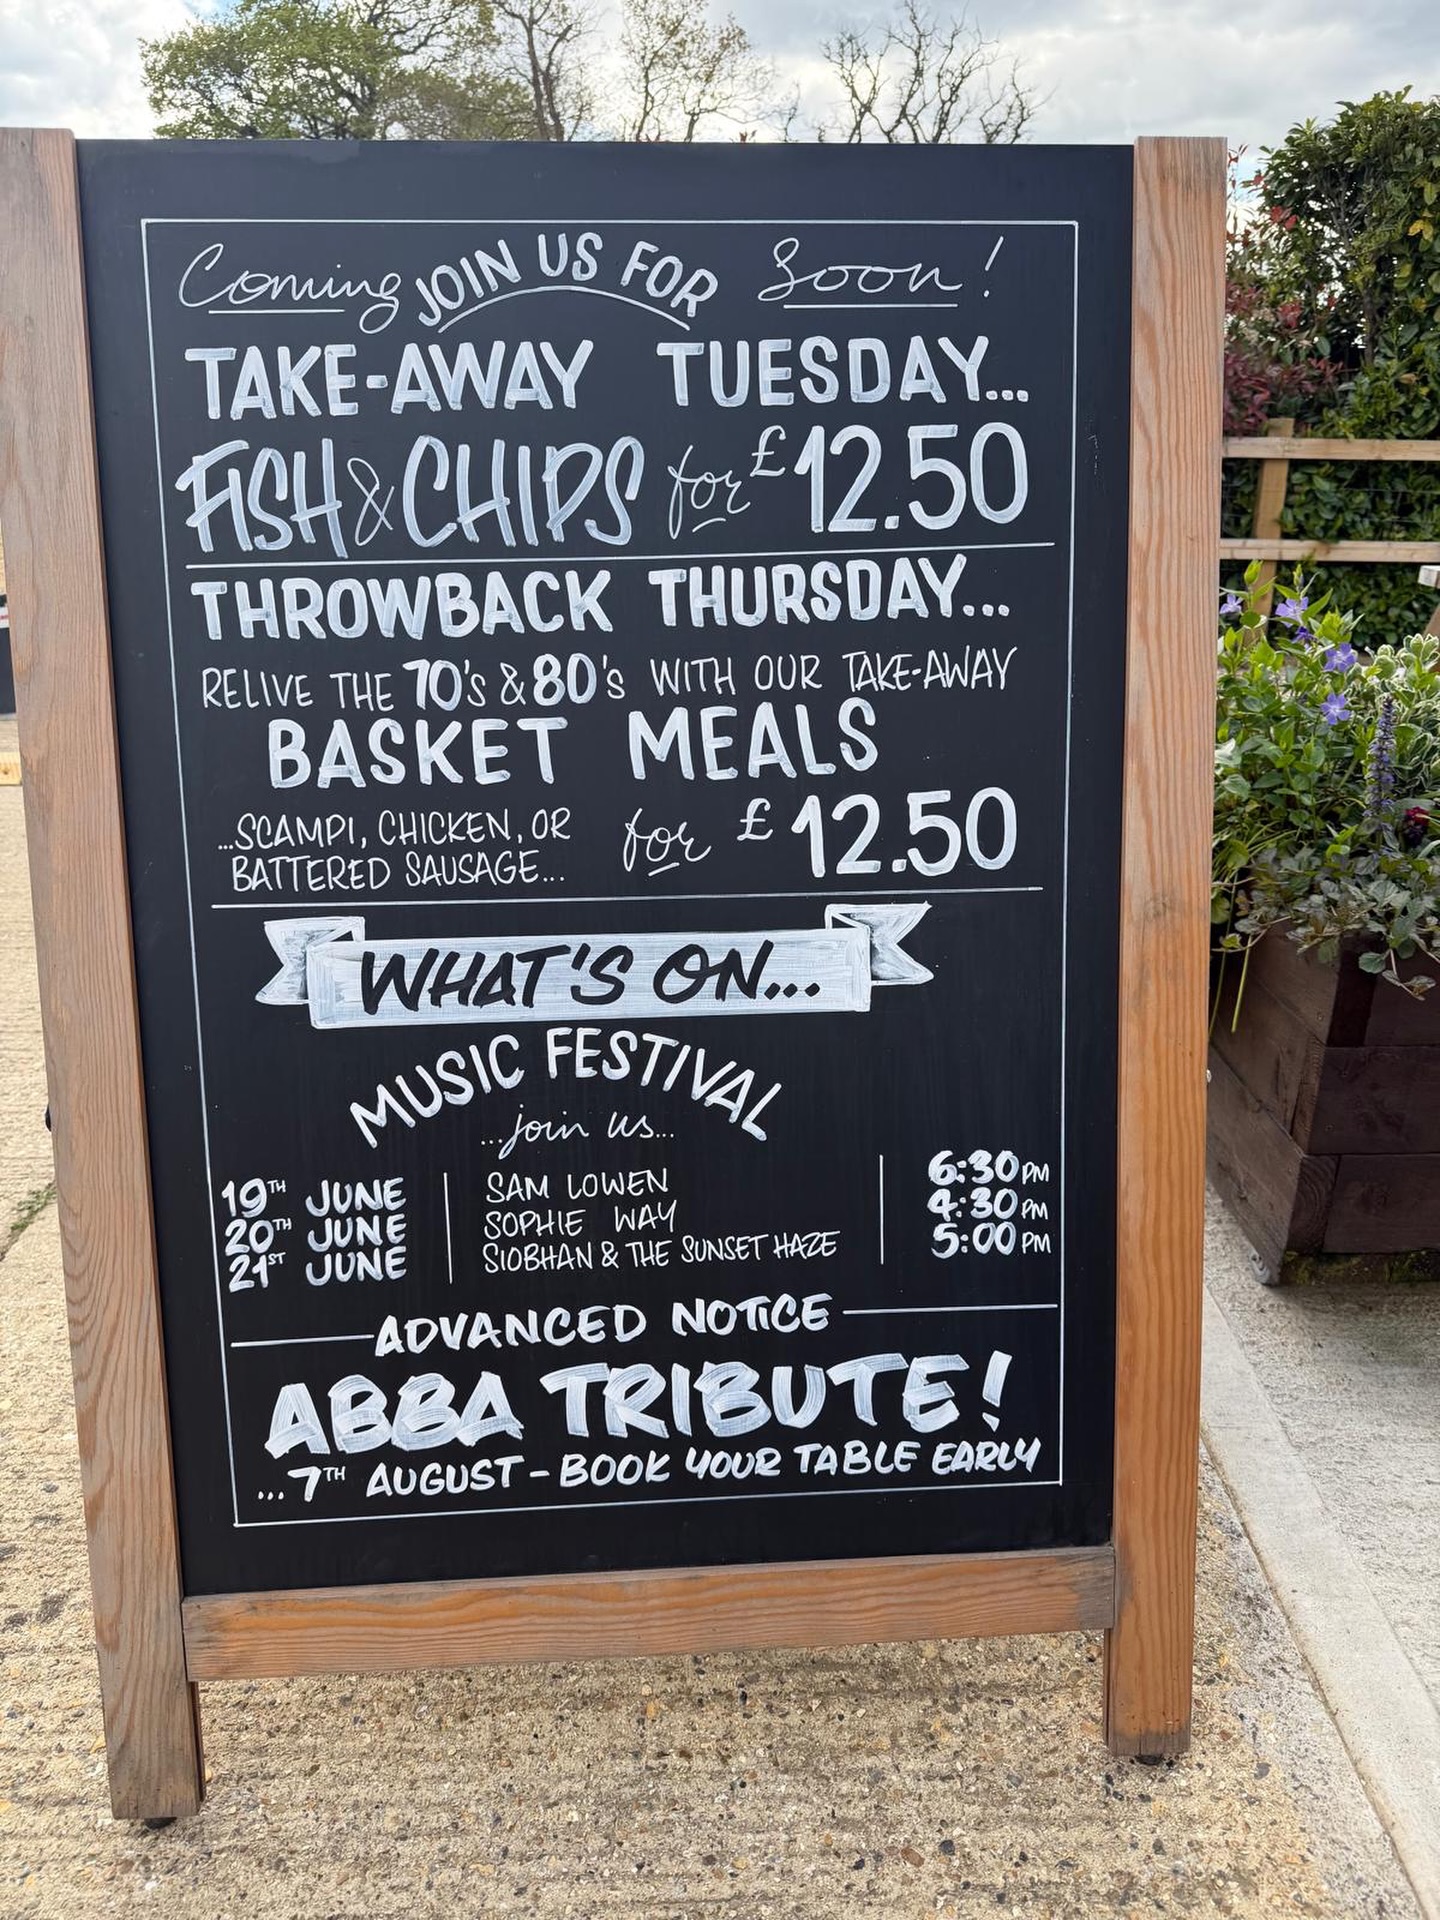 Coming JOIN US FOR Soon!
TAKE-AWAY TUESDAY...
FISH & CHIPS for £12.50
THROWBACK THURSDAY...
RELIVE THE 70's & 80's WITH OUR TAKE-AWAY
BASKET MEALS
...SCAMPI, CHICKEN, OR
BATTERED SAUSAGE... for £12.50
WHAT'S ON...
MUSIC FESTIVAL
...join us...
19TH JUNE SAM LOWEN 6:30PM
20TH JUNE SOPHIE WAY 4:30PM
21ST JUNE SIOBHAN & THE SUNSET HAZE 5:00PM
ADVANCED NOTICE
ABBA TRIBUTE!
...7TH AUGUST - BOOK YOUR TABLE EARLY